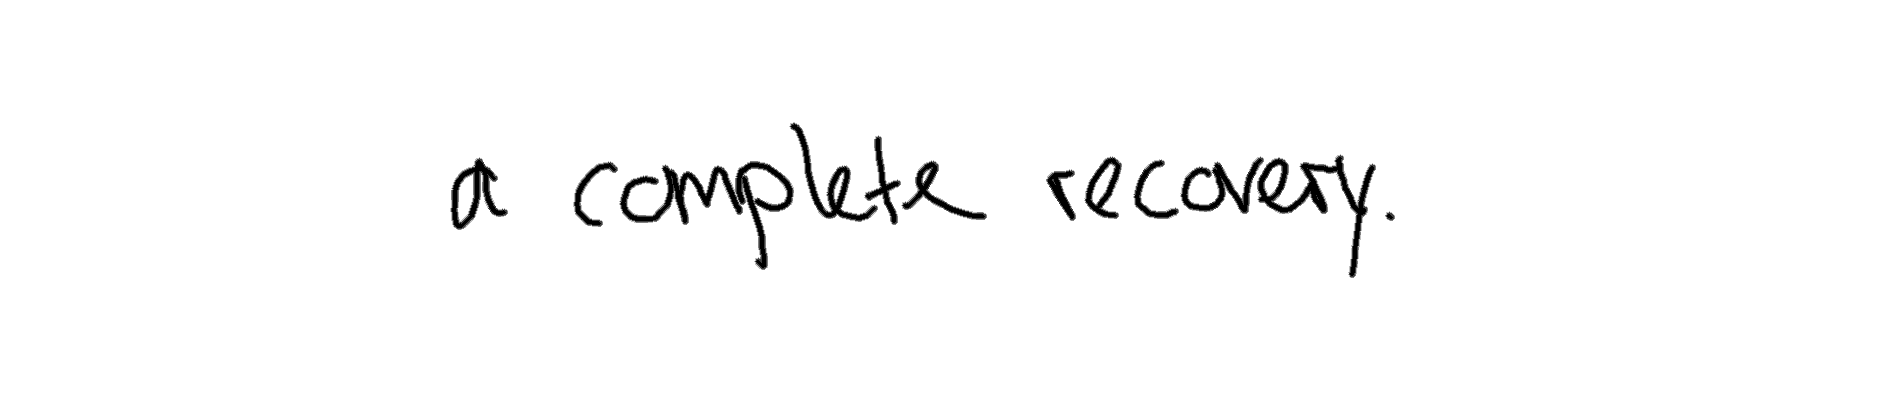 a complete recovery.